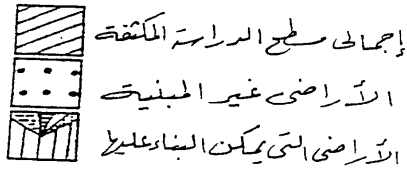 إجمالى مسطح الدراسة المكثفة
الأراضى غير المبنية
الأراضى التى يمكن البناء عليها